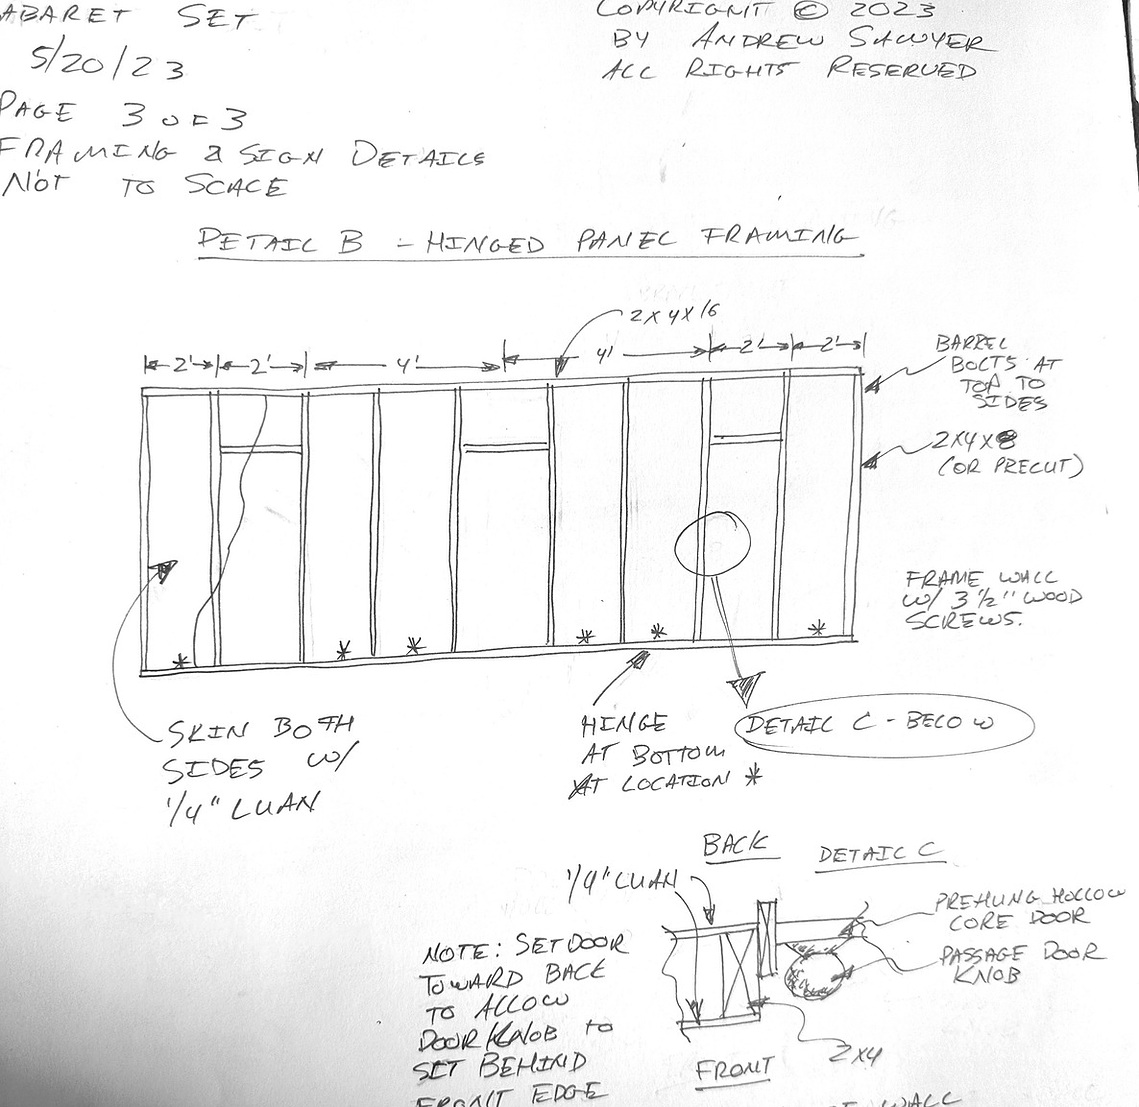 ABARET SET
5/20/23
PAGE 3 OF 3
FRAMING & SIGN DETAILS
NOT TO SCALE
COPYRIGHT © 2023
BY ANDREW SAWYER
ALL RIGHTS RESERVED
DETAIL B - HINGED PANEL FRAMING
2X4X16
2' 2' 4' 4' 2' 2'
BARREL
BOLTS AT
TOP TO
SIDES
2X4X8
(OR PRECUT)
FRAME WALL
W/ 3 1/2" WOOD
SCREWS.
* * * * * *
SKIN BOTH
SIDES W/
1/4" LUAN
HINGE
AT BOTTOM
AT LOCATION *
DETAIL C - BELOW
BACK
DETAIL C
1/4" LUAN
PREHUNG HOLLOW
CORE DOOR
PASSAGE DOOR
KNOB
NOTE: SET DOOR
TOWARD BACK
TO ALLOW
DOOR KNOB TO
SIT BEHIND
FRONT EDGE
2X4
FRONT
WALL